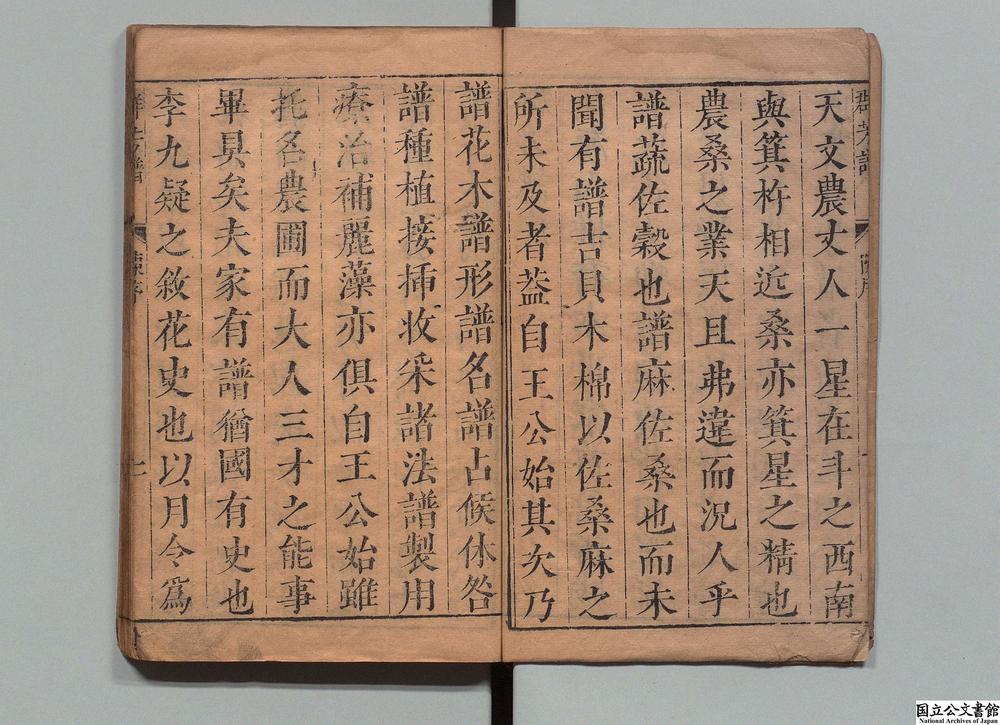 天文農丈人一星在斗之西南
與箕杵相近桑亦箕星之精也
農桑之業天且弗違而況人乎
譜蔬佐穀也譜麻佐桑也而未
聞有譜吉貝木棉以佐桑麻之
所未及者葢自王公始其次乃
譜花木譜形譜名譜占候休咎
譜種植接揷收采諸法譜製用
療治補麗藻亦俱自王公始雖
托名農圃而大人三才之能事
畢具矣夫家有譜猶國有史也
李九疑之敘花史也以月令爲
国立公文書館
National Archives of Japan